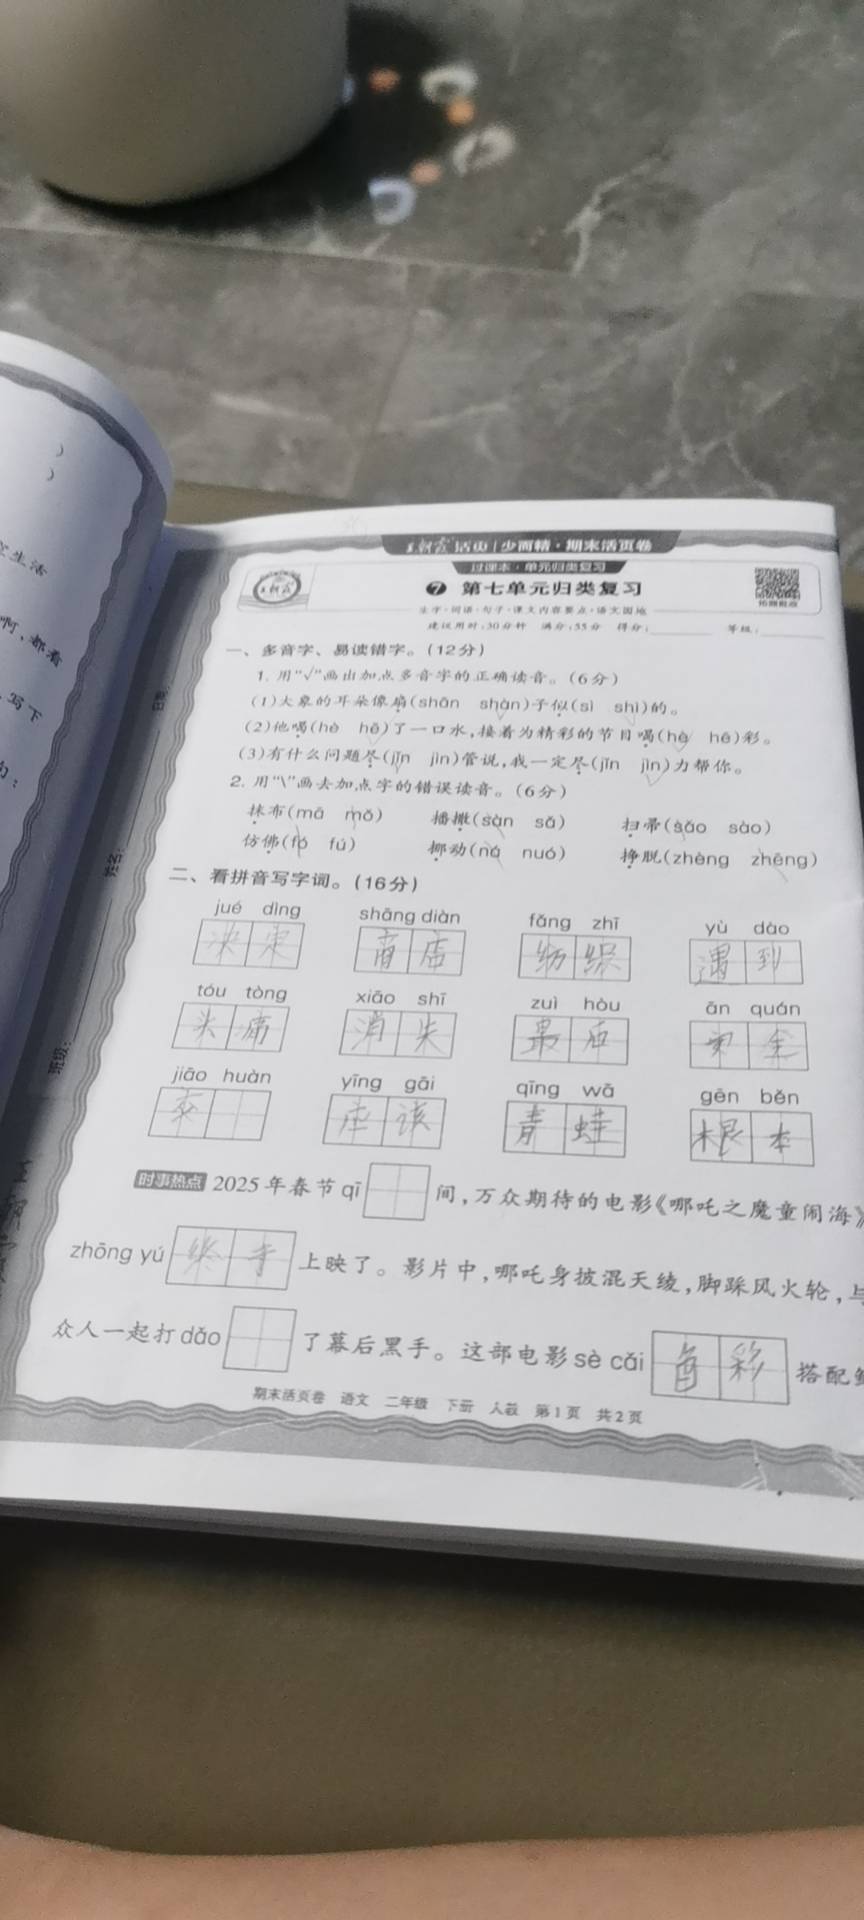 王朝霞 活页 | 少而精·期末活页卷
过课本·单元归类复习
7 第七单元归类复习
生字·词语·句子·课文内容要点·语文园地
建议用时:30分钟 满分:55分 得分: 等级:
一、多音字、易读错字。(12分)
1. 用“√”画出加点多音字的正确读音。(6分)
(1)大象的耳朵像扇(shān shàn)子似(sì shì)的。
(2)他喝(hè hē)了一口水,接着为精彩的节目喝(hè hē)彩。
(3)有什么问题尽(jǐn jìn)管说,我一定尽(jǐn jìn)力帮你。
2. 用“\”画去加点字的错误读音。(6分)
抹布(mā mǒ) 播撒(sàn sǎ) 扫帚(sǎo sào)
仿佛(fó fú) 挪动(ná nuó) 挣脱(zhèng zhēng)
二、看拼音写字词。(16分)
jué dìng shāng diàn fǎng zhī yù dào
决定 商店 纺织 遇到
tóu tòng xiāo shī zuì hòu ān quán
头痛 消失 最后 安全
jiāo huàn yīng gāi qīng wā gēn běn
交 应该 青蛙 根本
时事热点 2025年春节qī 间,万众期待的电影《哪吒之魔童闹海》
zhōng yú 终于 上映了。影片中,哪吒身披混天绫,脚踩风火轮,与
众人一起打dǎo 了幕后黑手。这部电影sè cǎi 色彩 搭配
期末活页卷 语文 二年级 下册 人教 第1页 共2页
班级:
姓名:
空生活
啊,都看
写下